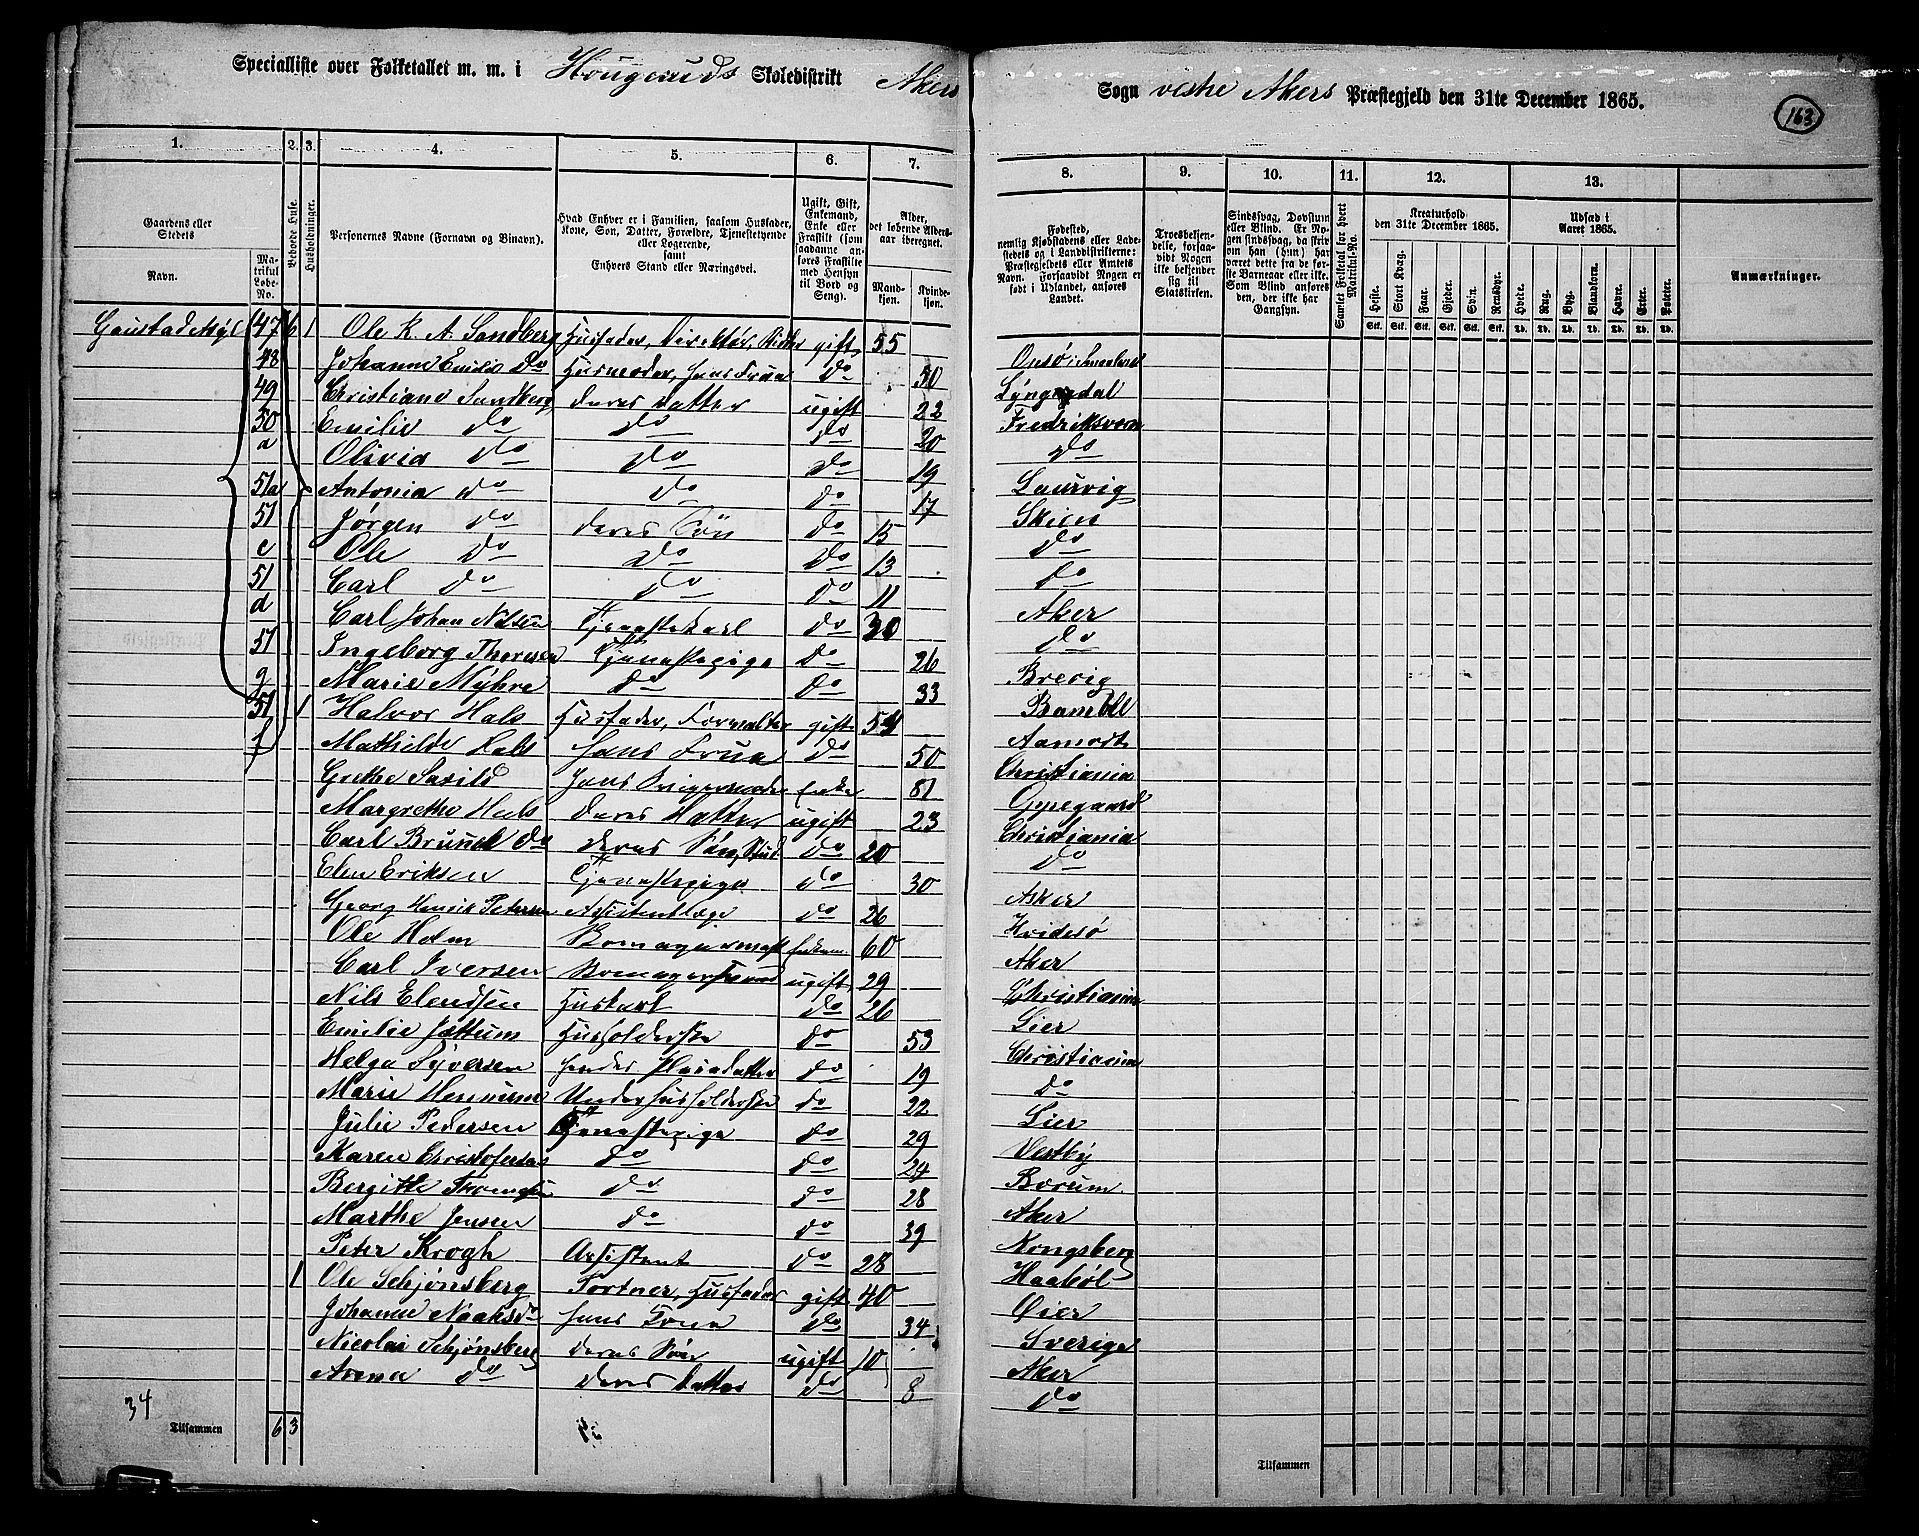 Specialliste over Folketallet m. m. i Hougeruds Skoledistrikt Akers Sogn vestre Akers Præstegjeld den 31te December 1865.
163
1. 2. 3. 4. 5. 6. 7. 8. 9. 10. 11. 12. 13.
Gaardens eller Stedets
Navn.
Matrikul Løbe-No.
Beboede Huse.
Husholdninger.
Personernes Navne (Fornavn og Binavn).
Hvad Enhver er i Familien, saasom Husfader, Kone, Søn, Datter, Forældre, Tjenestetyende eller Logerende, samt Enhvers Stand eller Næringsvei.
Ugift, Gift, Enkemand, Enke eller Fraskilt (som saadanne anføres Fraskilte med Hensyn til Bord og Seng).
Alder, det løbende Aldersaar iberegnet.
Mandkjøn. Kvindekjøn.
Fødested, nemlig Kjøbstadens eller Ladestedets og i Landdistrikterne: Præstegjeldets eller Amtets Navn. Forsaavidt Nogen er født i Udlandet, anføres Landet.
Troesbekjendelse, forsaavidt Nogen ikke bekjender sig til Statskirken.
Sindssvag, Døvstum eller Blind. Er Nogen sindssvag, da skriv om han (hun) har været dette fra de første Barneaar eller ikke. Som Blind anføres den, der ikke har Gangsyn.
Samlet Folketal for hvert Matrikul-No.
Kreaturhold den 31te December 1865.
Heste. Stort Kvæg. Faar. Gjeder. Svin. Rensdyr.
Stk. Stk. Stk. Stk. Stk. Stk.
Udsæd i Aaret 1865.
Hvede. Rug. Byg. Blandkorn. Havre. Erter. Poteter.
Td. Td. Td. Td. Td. Td. Td.
Anmærkninger.
Gaustad Asyl 47 6 1 Ole R. A. Sandberg Husfader, Direktør, gift 55 Onsø i Smaalenene
48 Johanne Emilie Do Husmoder, hans Frue Do 50 Lyngdal
49 Christiane Sandberg deres Datter ugift 22 Fredriksværn
50 Emilie Do Do Do 20 Do
a Olivia Do Do Do 19 Laurvig
51a Antonia Do Do Do 17 Skien
51 Jørgen Do deres Søn Do 15 Do
c Ole Do Do Do 13 Do
51 Carl Do Do Do 11 Aker
d Carl Johan Nilsen Tjenestekarl Do 30 Do
51 Ingeborg Thoresen Tjenestepige Do 26 Brevig
g Marie Myhre Do Do 33 Bamble
51 1 Halvor Hals Husfader, Forvalter gift 54 Aamodt
f Mathilde Hals hans Frue Do 50 Christiania
Grethe Saxild hans Svigermoder Enke 81 Oppegaard
Margrethe Hals deres Datter ugift 23 Christiania
Carl Brunck Do deres Søn, Stud. Do 20 Do
Elen Eriksen Tjenestepige Do 30 Asker
Georg Henrik Petersen Assistentlæge Do 26 Hvidesø
Ole Holm 60 Aker
Carl Iversen ugift 29 Christiania
Nils Elendsen Huskarl Do 26 Lier
Emilie Jøttum Husholderske Do 53 Christiania
Helga Syversen hendes Pleiedatter Do 19 Do
Marie Hennum Underhusholderske Do 22 Lier
Julie Pedersen Tjenestepige Do 29 Vestby
Karen Christofersen Do Do 24 Bærum
Bergitte Do Do 28 Aker
Marthe Jensen Do Do 39 Kongsberg
Peter Krogh Assistent Do 28 Haabøl
1 Ole Schjønsberg Portner, Husfader gift 40 Øier
Johanne Do hans Kone Do 34 Sverige
Nicolai Schjønsberg deres Søn ugift 10 Aker
Arena Do deres Datter Do 8 Do
34
Tilsammen 6 3
Tilsammen